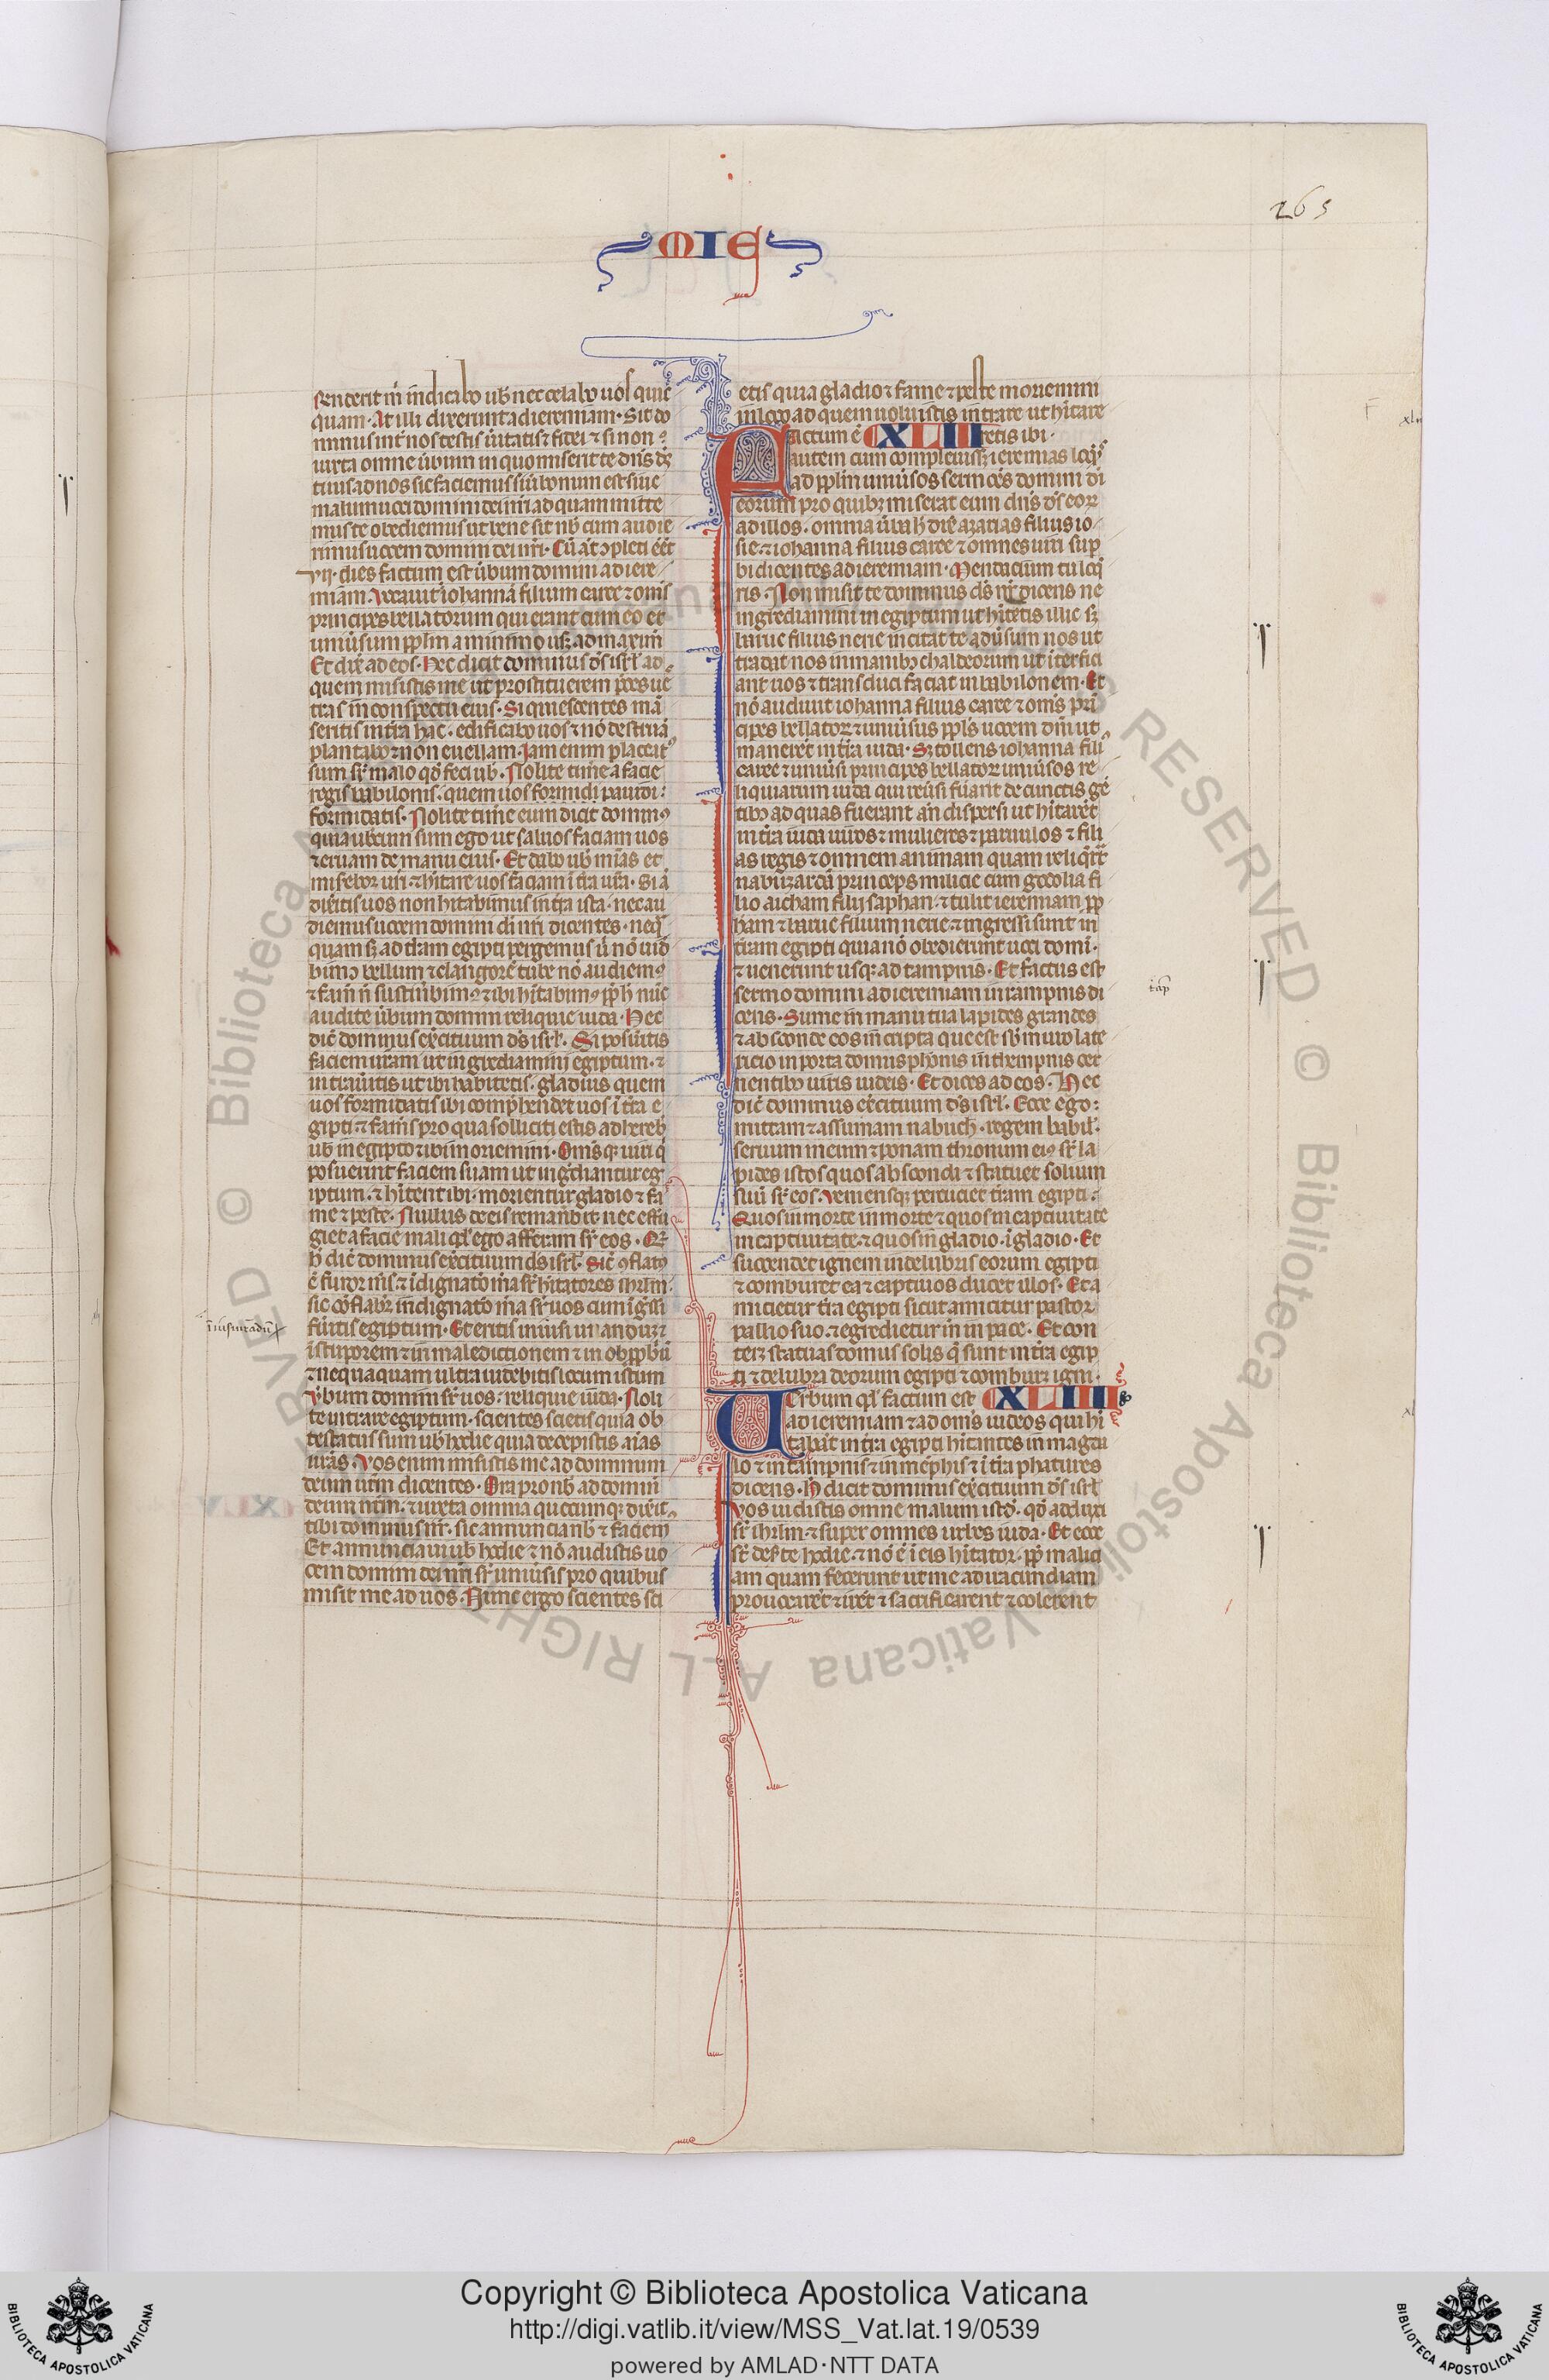 MIE
265
senderit m̄ indicabo ub̄ nec celabo uos quic
quam. At illi dixerunt ad ieremiam. Sit do
minus int̄ nos testis ūitatis ⁊ fidei ⁊ si non
iuxta omne ūbum in quo miserit te dn̄s ds̄
tuus ad nos sic faciemus siū bonum est siue
malum uoci domini dei nr̄i ad quam mitti
mus te obediemus ut bene sit nb̄ cum audie
rimus uocem domini dei nr̄i. Cū āt ɔpleti eēt
vii. dies factum est ūbum domini ad iere
miam. Vocauit iohannā filium caree ⁊ om̄s
principes bellatorum qui erant cum eo et
uniūsum pplm̄ a minimo usqꝫ ad maxim̄
Et dix̄ ad eos. Hec dicit dominus ds̄ isrl̄ ad
quem misistis me ut prosternerem p̄ces ue
tras in conspectu eius. Si quiescentes mā
seritis in tr̄a hac. edificabo uos ⁊ nō destruā
plantabo ⁊ non euellam. Iam enim placat
sum sr̄ malo qd̄ feci ub̄. Nolite tim̄e a facie
regis babilonis. quem uos formidi pauidi
formidatis. Nolite tim̄e eum dicit domin
quia uobcum sum ego ut saluos faciam uos
⁊ eruam de manu eius. Et dabo ub̄ mīas et
miserebor ur̄i. ⁊ hītare uos faciam ī tr̄a ur̄a. Si ā
dix̄itis uos non habitabimus in tr̄a ista. nec au
diemus uocem domini di nr̄i dicentes. neq̄
quam sꝫ ad tr̄am egipti pergemus ū nō uid
bimꝰ bellum ⁊ clangorē tube nō audiemꝰ
⁊ fam̄ n̄ sustin̄bimꝰ ⁊ ibi hītabimꝰ pp̄ h̄ nūc
audite ūbum domini reliquie iuda. Hec
dic̄ dominus ex̄cituum ds̄ isrl̄. Si posūitis
faciem ur̄am ut ingrediamini egiptum. ⁊
intrāūitis ut ibi habitetis. gladius quem
uos formidatis ibi comp̄hendet uos ī tr̄a e
gipti ⁊ fam̄s pro qua solliciti estis adhereb
ub̄ in egipto ⁊ ibi moriemini. Om̄s qꝫ uiri q̄
posuerint faciem suam ut ingr̄diantur eg
iptum. ⁊ hītent ibi. morientur gladio ⁊ fa
me ⁊ peste. Nullus de eis remanb̄it. nec effu
giet a facie mali qd̄ ego afferam sr̄ eos. Qr
h̄ dic̄ dominus ex̄cituum ds̄ isrl̄. Sic̄ ɔflatꝰ
ē furor m̄s ⁊ īdignatō m̄a sr̄ hītatores ihrlm̄
sic cōflabit̄ indignatō m̄a sr̄ uos cum īgssi
fūitis egiptum. Et eritis in iusiurandū ⁊
ī stuporem ⁊ in maledictionem ⁊ in obpp̄biū
⁊ nequaquam ultra uidebitis locum istum
Ūbum domini sr̄ uos. reliquie iuda. Noli
te intrare egiptum. scientes scietis quia ob
testatus sum ub̄ hodie quia decepistis aīas
ur̄as. Vos enim misistis me ad dominum
deum ur̄m dicentes. Ora pro nb̄ ad domin̄
deum nr̄m. ⁊ iuxta omnia quecumqꝫ dix̄it
tibi dominus nr̄. sic annuncia nb̄ ⁊ faciem
Et annunciaui ub̄ hodie ⁊ nō audistis uo
cem domini dei ur̄i sr̄ uniūsis pro quibus
misit me ad uos. Nunc ergo scientes sci
etis quia gladio ⁊ fame ⁊ peste moriemini
in loco ad quem uoluistis intrare ut hītare
Factum ē XLIII retis ibi.
autem cum compleuissꝫ ieremias loqͥs
ad pplm̄ uniūsos sermōes domini di
eorum pro quibꝫ miserat eum dn̄s ds̄ eoꝝ
ad illos. omnia ūba h̄ dix̄ azarias filius io
sie. ⁊ iohanna filius caree ⁊ omnes uiri sup̄
bi dicentes ad ieremiam. Mendacium tu loq̄
ris. Non misit te dominus ds̄ nr̄ dicens ne
ingrediamini in egiptum ut hītetis illic sꝫ
baruc filius nerie incitat te adūsum nos ut
tradat nos in manibꝫ chaldeorum ut īterfici
ant uos ⁊ transduci faciat in babilonem. Et
nō audiuit iohanna filius caree ⁊ om̄s pri
cipes bellatoꝝ ⁊ uniūsus ppls̄ uocem dn̄i ut
manerēt in tr̄a iuda. Sꝫ tollens iohanna fili
caree ⁊ uniūsi principes bellatoꝝ uniūsos re
liquiarum iuda qui reūsi fūant de cunctis gē
tibꝫ ad quas fuerant an̄ dispersi ut hītarēt
in tr̄a iuda uiros ⁊ mulieres ⁊ paruulos ⁊ fili
as regis ⁊ omnem animam quam reliq̄rat
nabuzardā princeps milicie cum godolia fi
lio aicham filij saphan. ⁊ tulit ieremiam pp̄
ham ⁊ baruc filium nerie. ⁊ ingressi sunt in
tr̄am egipti quia nō obedierunt uoci domī.
⁊ uenerunt usqꝫ ad tampnis. Et factus est
sermo domini ad ieremiam in tampnis di
cens. Sume in manu tua lapides grandes
⁊ absconde eos in cripta que est sb̄ muro late
ricio in porta domus phōnis in thempnis cer
nentibꝫ uiris iudeis. Et dices ad eos. Hec
dic̄ dominus ex̄cituum ds̄ isrl̄. Ecce ego
mittam ⁊ assumam nabuch̄. regem babil̄.
seruum meum ⁊ ponam thronum eiꝰ sr̄ la
pides istos quos abscondi ⁊ statuet solium
suū sr̄ eos. Veniensqꝫ percuciet tr̄am egipti
Quos in morte in morte ⁊ quos in captiuitate
in captiuitate. ⁊ quos in gladio. ī gladio. Et
succendet ignem in delubris eorum egipti
⁊ comburet ea ⁊ captiuos ducet illos. Et a
micietur tr̄a egipti sicut amicitur pastor
pallio suo. ⁊ egredietur in in pace. Et con
teret statuas domus solis q̄ sunt in tr̄a egip
ti ⁊ delubra deorum egipti ⁊ comburꝫ igni.
Verbum qd̄ factum est XLIIII
ad ieremiam ⁊ ad om̄s iudeos qui hī
tabāt in tr̄a egipti hītantes in magda
lo ⁊ in tampnis ⁊ in memphis ⁊ ī tr̄a phatures
dicens. H̄ dicit dominus ex̄cituum ds̄ isrl̄
Vos uidistis omne malum istd̄. qd̄ adduxi
sr̄ ihrlm̄ ⁊ super omnes urbes iuda. Et ecce
sr̄ deserte hodie. ⁊ nō ē ī eis hītator. pp̄ malici
am quam fecerunt ut me ad iracundiam
prouocarēt ⁊ irēt ⁊ sacrificarent ⁊ colerent
Copyright © Biblioteca Apostolica Vaticana
http://digi.vatlib.it/view/MSS_Vat.lat.19/0539
powered by AMLAD·NTT DATA
BIBLIOTECA APOSTOLICA VATICANA
BIBLIOTECA APOSTOLICA VATICANA